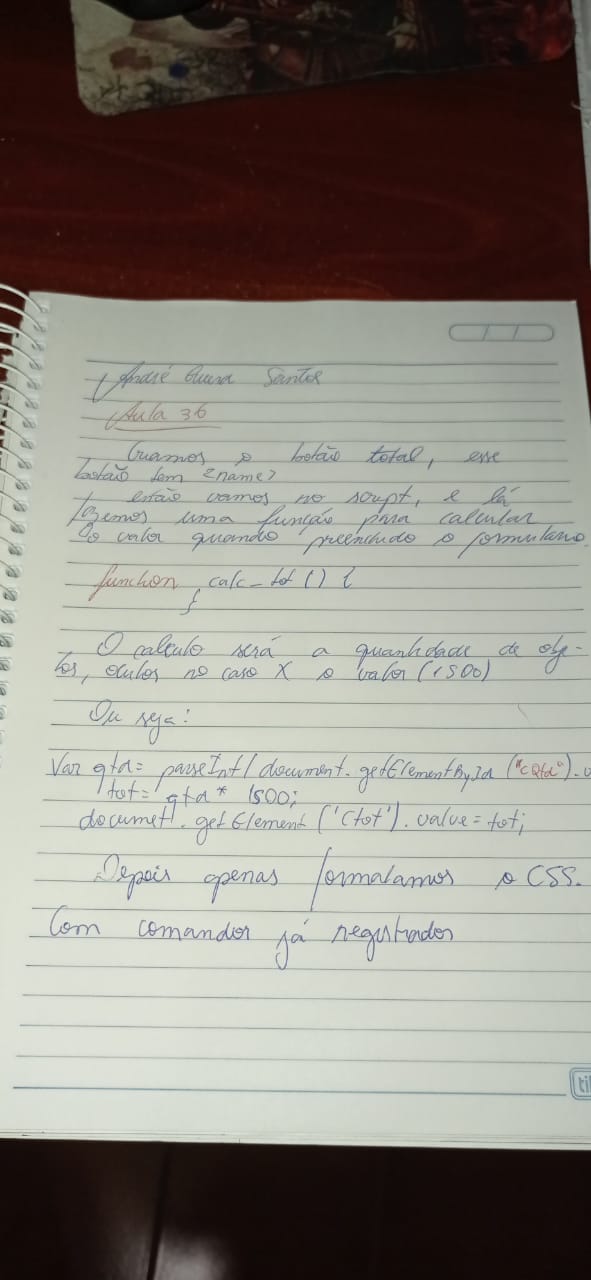 André Guerra Santos
Aula 36
Criamos o botão total, esse
botão tem <name>
então vamos no script, e lá
fazemos uma função para calcular
o valor quando preenchido o formulario.
function calc_tot () {
}
O calculo será a quantidade de obje-
tos, oculos no caso X o valor (1500)
Ou seja:
Var qtd= parseInt( document.getElementById ("cQtd").v
tot= qtd * 1500;
documet. getElement ('Ctot').value= tot;
Depois apenas formatamos o CSS.
Com comandos já registrados
ti